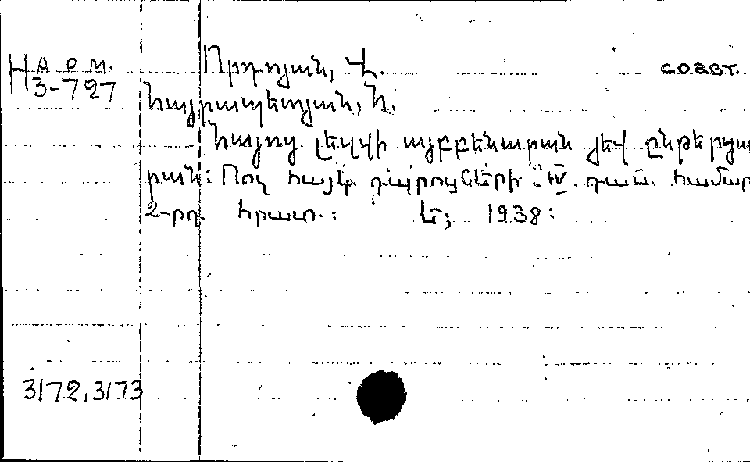 Н Арм.
3-727
Որդոյան, Վ. соавт.
Հայրապետյան, Ն.
Հայոց լեզվի այբբենարան յեվ ընթերցա
րան: Ոչ հայկ. դպրոցների IV դաս. համար
2-րդ. հրատ.: Յե; 1938:
3172,3173